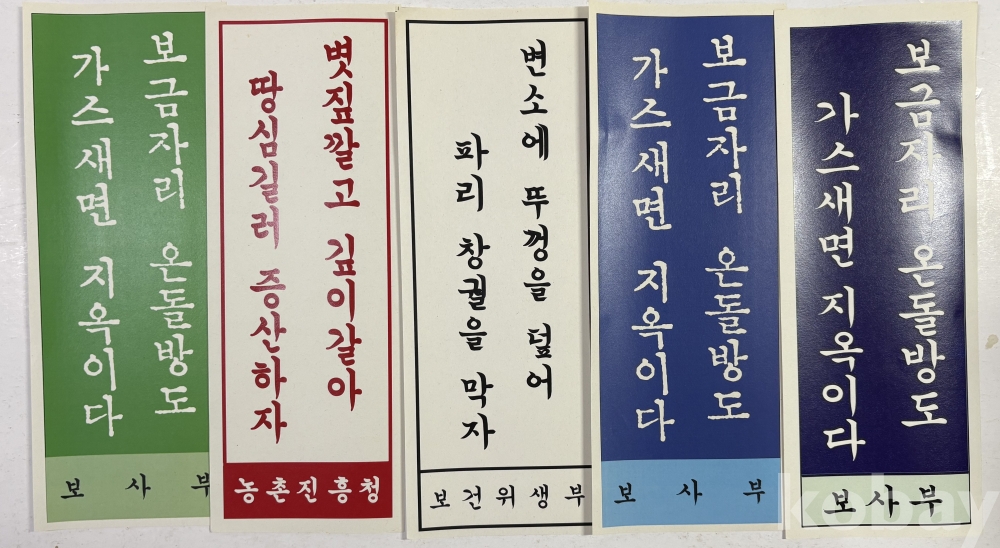 보금자리 온돌방도
가스새면 지옥이다
보사부
볏짚깔고 깊이갈아
땅심길러 증산하자
농촌진흥청
변소에 뚜껑을 덮어
파리 창궐을 막자
보건위생부
보금자리 온돌방도
가스새면 지옥이다
보사부
보금자리 온돌방도
가스새면 지옥이다
보사부
kobay